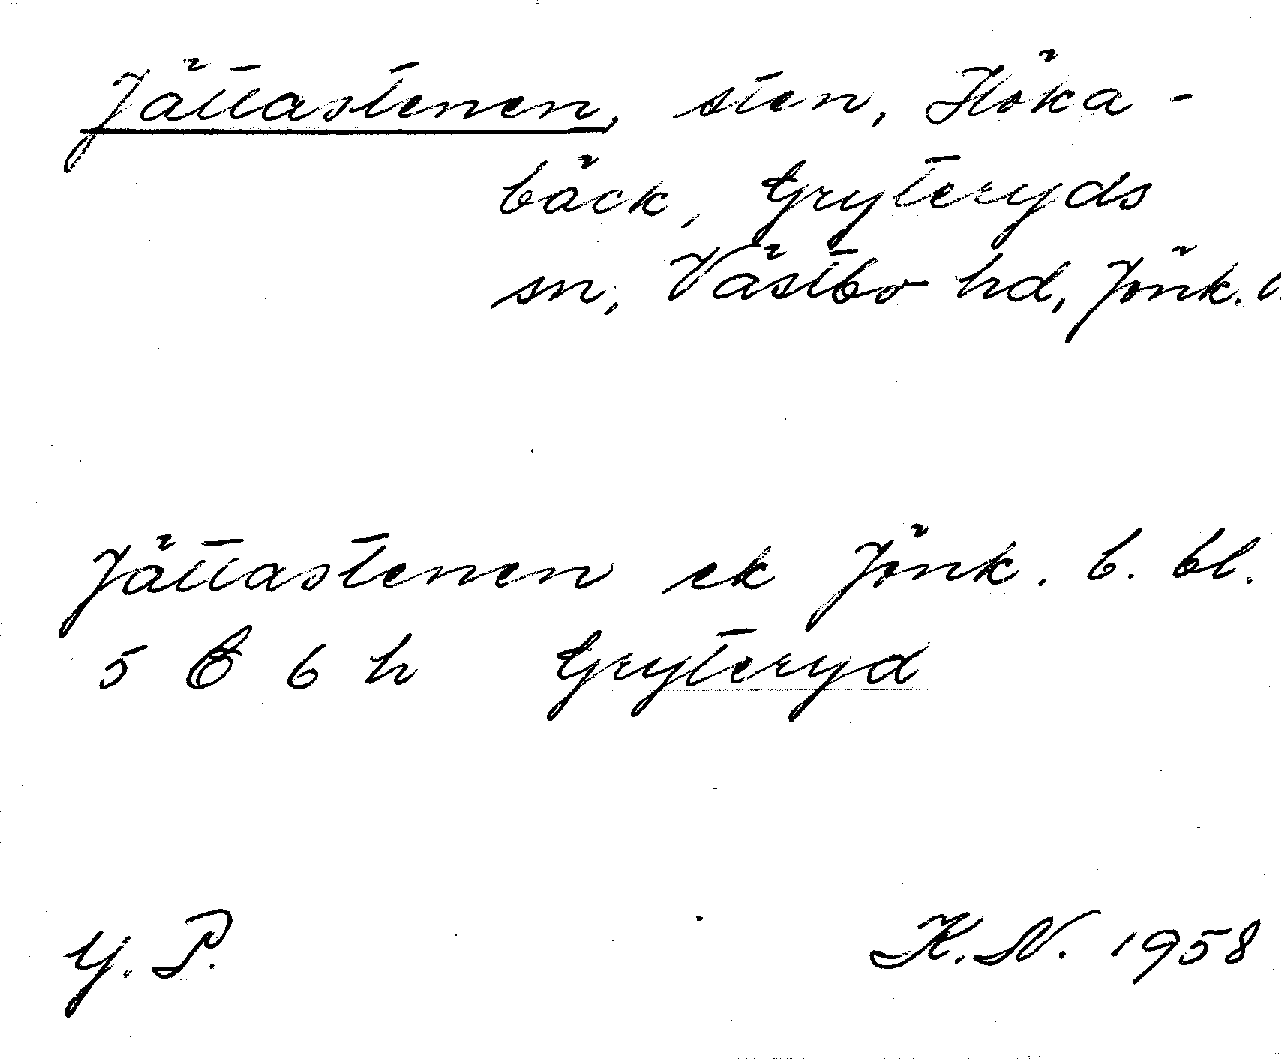 Jättastenen, sten, Höka-
bäck, Gryteryds
sn, Västbo hd, Jönk.
Jättastenen ek Jönk. b. bl.
5 C 6 h Gryteryd
Y. P. K. N. 1958